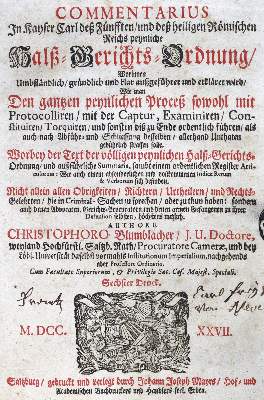 COMMENTARIUS
In Kayser Carl deß Fünfften/ und deß heiligen Römischen
Reichs peynliche
Halß-Gerichts-Ordnung/
Worinnen
Umbständlich/ gründlich und klar außgeführet und erkläret wird/
Wie man
Den gantzen peynlichen Proceß sowohl mit
Protocolliren/ mit der Captur, Examiniren/ Con-
stituiren/ Torquiren/ und sonsten biß zu Ende ordentlich führen/ als
auch nach und Schliessung desselben/ allerhand Unthaten
gebührlich straffen solle.
Worbey der Text der völligen peynlichen Halß-Gerichts-
Ordnung/ und außführliche Summaria, sambt einem ordentlichen Register
und vollkommenen Indice Rerum
& Verborum sich befinden.
Nicht allein allen Obrigkeiten/ Richtern/ Urtheilern/ und Rechts-
Gelehrten/ die in Criminal-Sachen zu sprechen/ oder zu thun haben: sondern
auch denen Advocaten, und denen armen Gefangenen zu ihrer
Defension höchstens nutzlich.
AUTHORE
CHRISTOPHORO Blumblacher/ J. U. Doctore,
weyland Hochfürstl. Saltzb. Rath/ Procuratore Cameræ, und bey
Löbl. Universität daselbst vormahls Institutionum Imperialium, nachgehends
aber Professore Ordinario.
Cum Facultate Superiorum, & Privilegio Sac. Cæs. Majest. Speciali.
Sechster Druck.
M. DCC. XXVII.
Saltzburg/ gedruckt und verlegt durch Johann Joseph Mayrs/ Hof- und
Academischen Buchdruckers und Handlers seel. Erben.